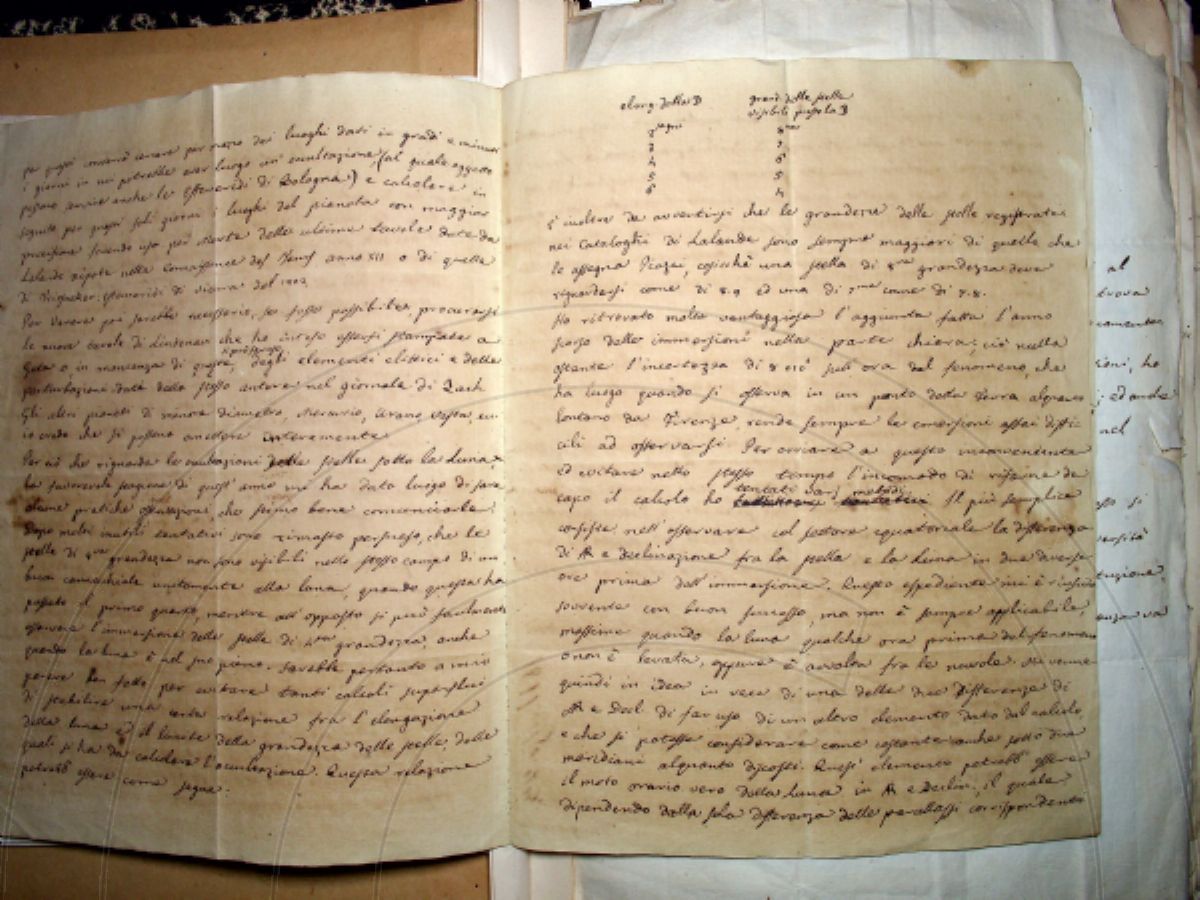 per questi converrà cercare per mezzo dei luoghi dati in gradi e minuti
i giorni in cui potrebbe aver luogo un' occultazione, (al quale oggetto
possono servire anche le Effemeridi di Bologna) e calcolare in
seguito per questi soli giorni i luoghi del pianeta con maggior
precisione facendo uso per Marte delle ultime tavole date da
Lalande ripote nella Connaissance des Tems anno XII o di quelle
di Triesnecker. Effemeridi di Vienna del 1802
Per Venere poi sarebbe necessario, se fosse possibile, procurarsi
le nuove tavole di Lindenau che ho inteso essersi stampate a
Gota o in mancanza di queste, degli elementi elittici e delle
perturbazioni date dallo stesso autore nel giornale di Zach
Gli altri pianeti di minore diametro, Mercurio, Urano, Vesta, ec.
io credo che si possano omettere interamente
Per ciò che riguarda le occultazioni delle stelle sotto la Luna,
la favorevole stagione di quest' anno mi ha dato luogo di fare
alcune pratiche osservazioni, che stimo bene comunicarle.
Dopo molti inutili tentativi sono rimasto persuaso, che le
stelle di 9va grandezza non sono visibili nello stesso campo di un
buon cannocchiale unitamente alla luna, quando questa ha
passato il primo quarto, mentre all' opposto si può facilmente
osservare l' immersione delle stelle di 4ta grandezza, anche
quando la luna è nel suo pieno. Sarebbe pertanto a mio
parere ben fatto per evitare tanti calcoli superflui
di stabilire una certa relazione fra l' elongazione
della luna ed il limite della grandezza delle stelle, delle
quali si ha da calcolare l' occultazione. Questa relazione
potrebb' essere come segue.
elong. della ☽ grand. delle stelle
visibili presso la ☽
2 segni 8va
3 7
4 6
5 5
6 4
È inoltre da avvertirsi che le grandezze delle stelle registrate
nei Cataloghi di Lalande sono sempre maggiori di quelle che
le assegna Piazzi, cosicchè una stella di 8va grandezza deve
riguardarsi come di 8.9 ed una di 7ma come di 7.8.
Ho ritrovato molto vantaggiosa l' aggiunta fatta l' anno
scorso delle immersioni nella parte chiara; ciò nulla
ostante l' incertezza di 8 o 10' sull' ora del fenomeno, che
ha luogo quando si osserva in un punto della Terra alquanto
lontano da Firenze, rende sempre le emersioni assai diffi-
cili ad osservarsi. Per ovviare a questo inconveniente
ed evitare nello stesso tempo l' incomodo di rifarne da
capo il calcolo ho tentati varj metodi. Il più semplice
consiste nell' osservare col settore equatoreale la differenza
di AR e Declinazione fra la stella e la Luna in due diverse
ore prima dell' immersione. Questo espediente mi è riuscito
sovente con buon successo, ma non è sempre applicabile
massime quando la luna qualche ora prima del fenomeno
o non è levata, oppure è avvolta fra le nuvole. Mi venne
quindi in idea in vece di una delle due differenze di
AR e Decl. di far uso di un altro elemento dato dal calcolo,
e che si potesse considerare come costante anche sotto due
meridiani alquanto discosti. Quest' elemento potrebb' essere
il moto orario vero della Luna in AR e Declin. il quale
dipendendo dalla sola differenza delle parallassi corrispondente
al
trova
ho
ed anche
nel
si
va